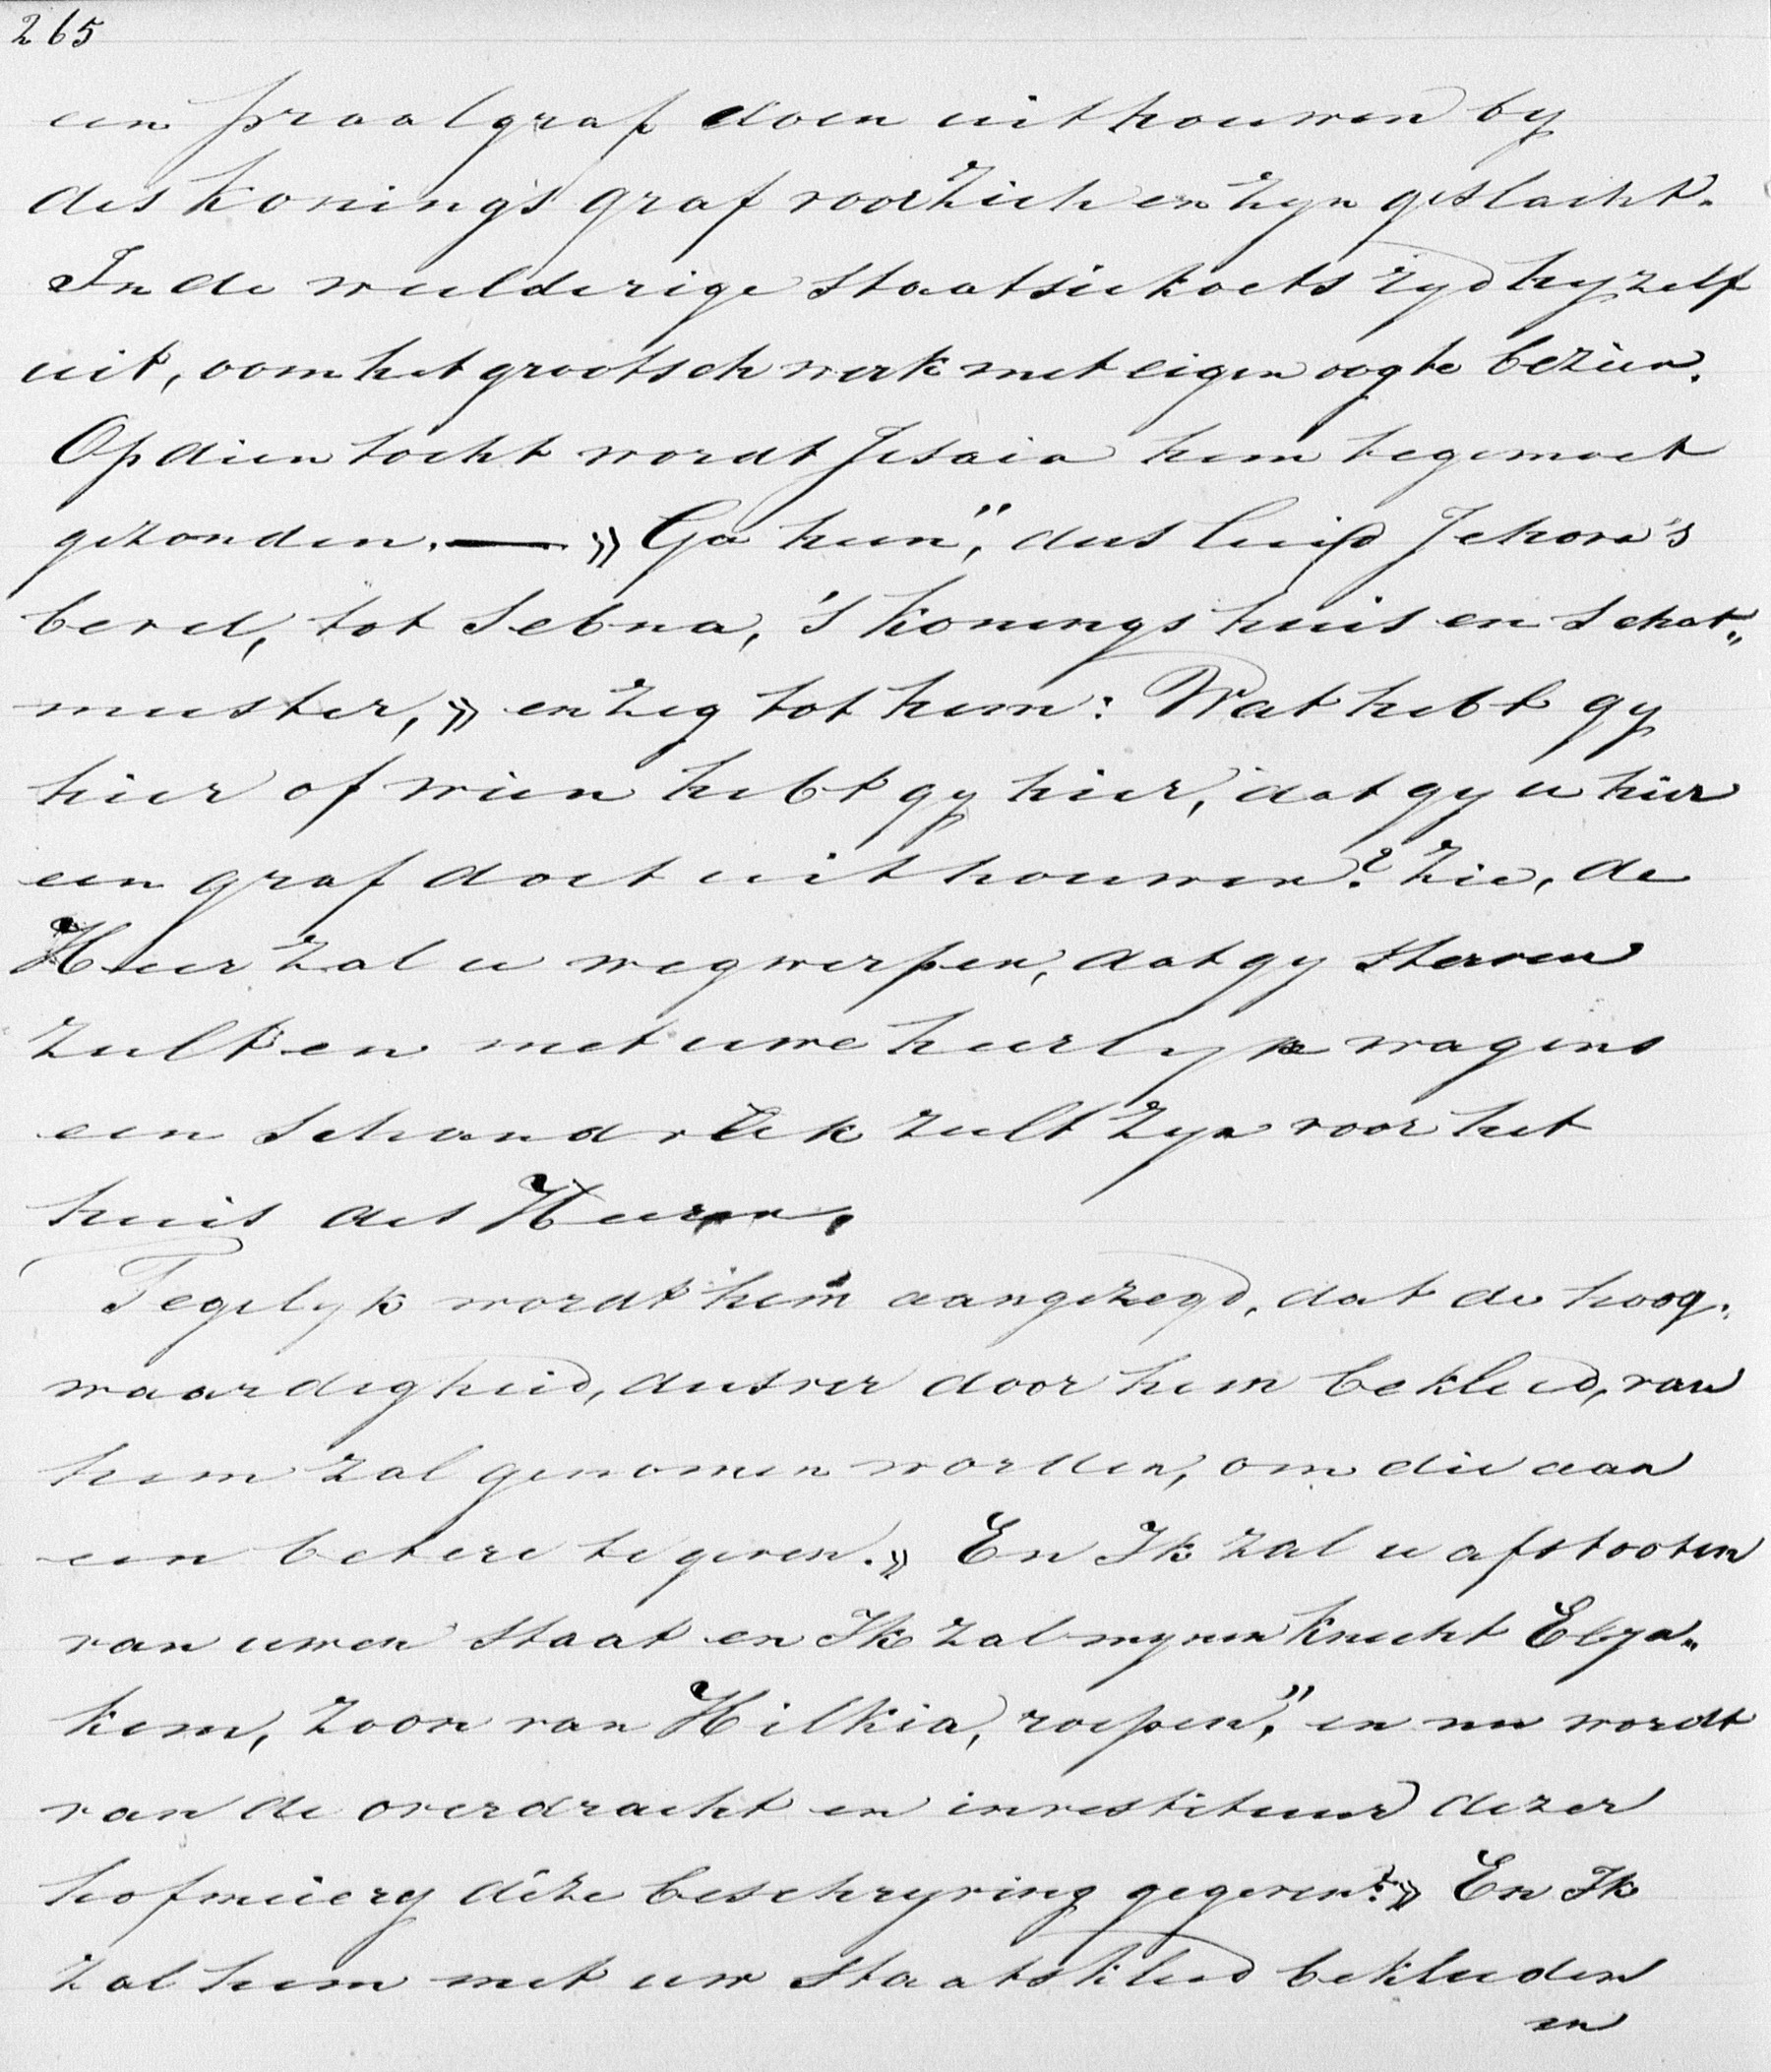 265
een praalgraf doen uithouwen by
des konings graf voor zich en zyn geslacht.
In de weelderige staatsiekoets ryd hy zelf
uit, oom het grootsch werk met eigen oog te bezien.
Op dien tocht wordt Jesaia hem tegemoet
gezonden. — » Ga heen", dus luid Jehova's
bevel, tot Sebna, 's konings huis en schat„
meester, » en zeg tot hem: Wat hebt gy
hier of wien hebt gy hier, dat gy u hier
een graf doet uithouwen? Zie, de
Heer zal u wegwerpen, dat gy sterven
zult en met uwe heerlyke wagens
een schandvlek zult zyn voor het
huis des Heeren.
Tegelyk wordt hem aangezegd, dat de hoog„
waardigheid, dusver door hem bekleed, van
hem zal genomen worden, om die aan
een betere te geven. » En Ik zal u afstooten
van uwen staat en Ik zal mynen knecht Elya„
kim, zoon van Hilkia, roepen", en nu wordt
van de overdracht en investituur dezer
hofmeiery déze beschryving gegeven: » En Ik
zal hem met uw staatskleed bekleeden
en